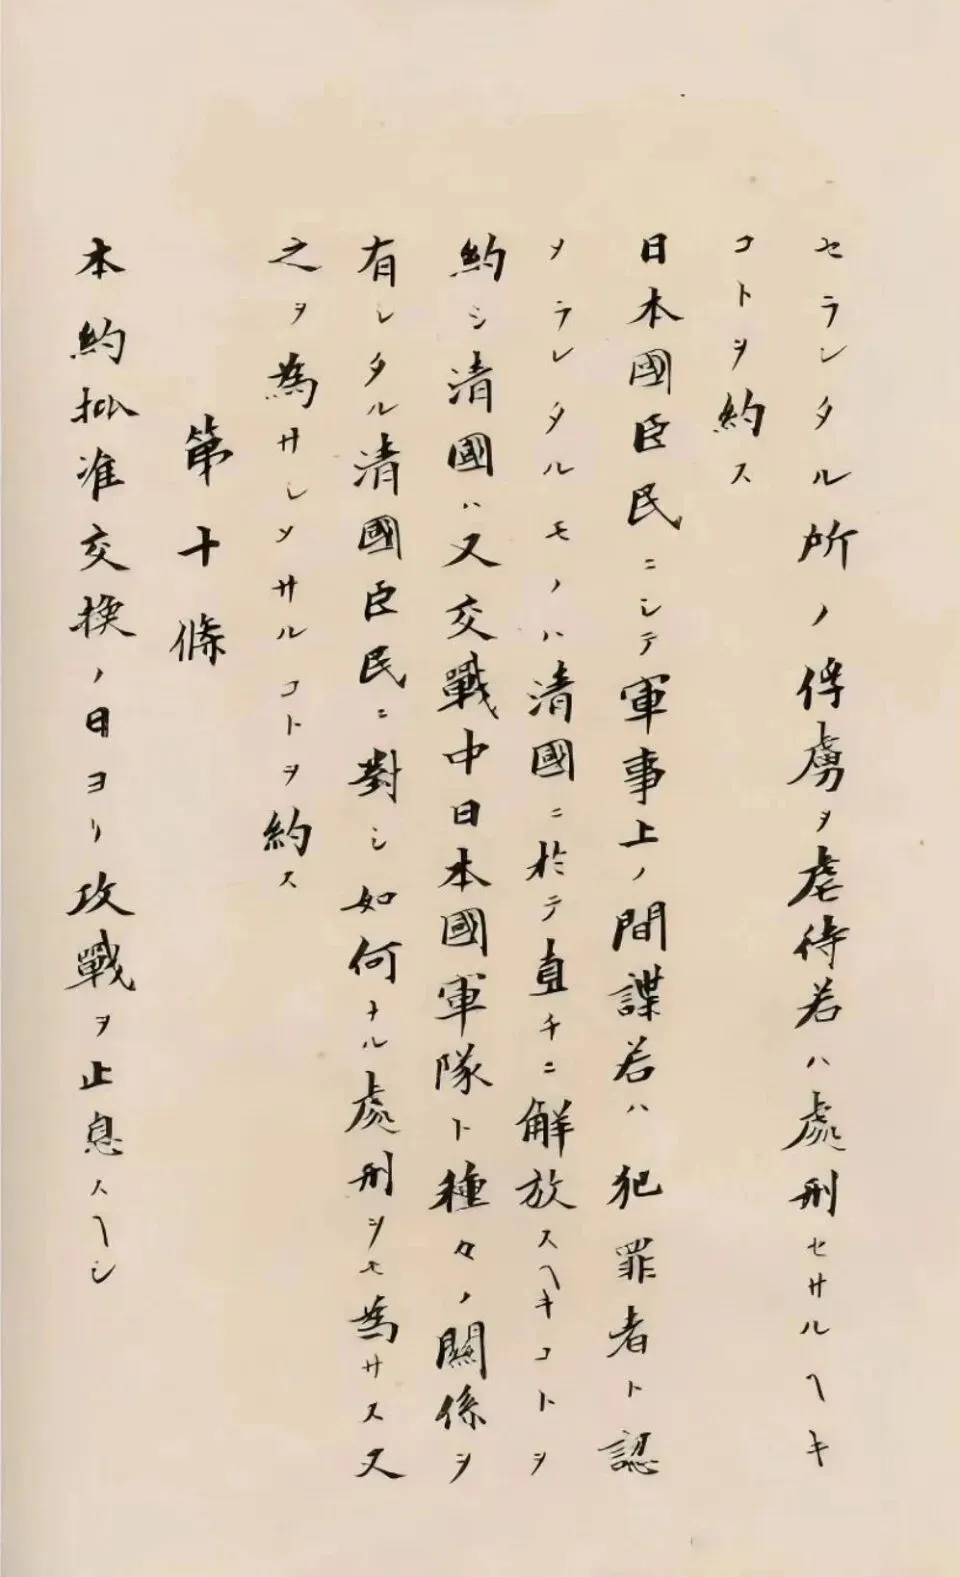 セラレタル所ノ俘虜ヲ虐待若ハ處刑セサルヘキ
コトヲ約ス
日本國臣民ニシテ軍事上ノ間諜若ハ犯罪者ト認
メラレタルモノハ清國ニ於テ直チニ解放スヘキコトヲ
約シ清國ハ又交戰中日本國軍隊ト種々ノ關係ヲ
有シタル清國臣民ニ對シ如何ナル處刑ヲモ為サス又
之ヲ為サシメサルコトヲ約ス
第十條
本約批准交換ノ日ヨリ攻戰ヲ止息スヘシ